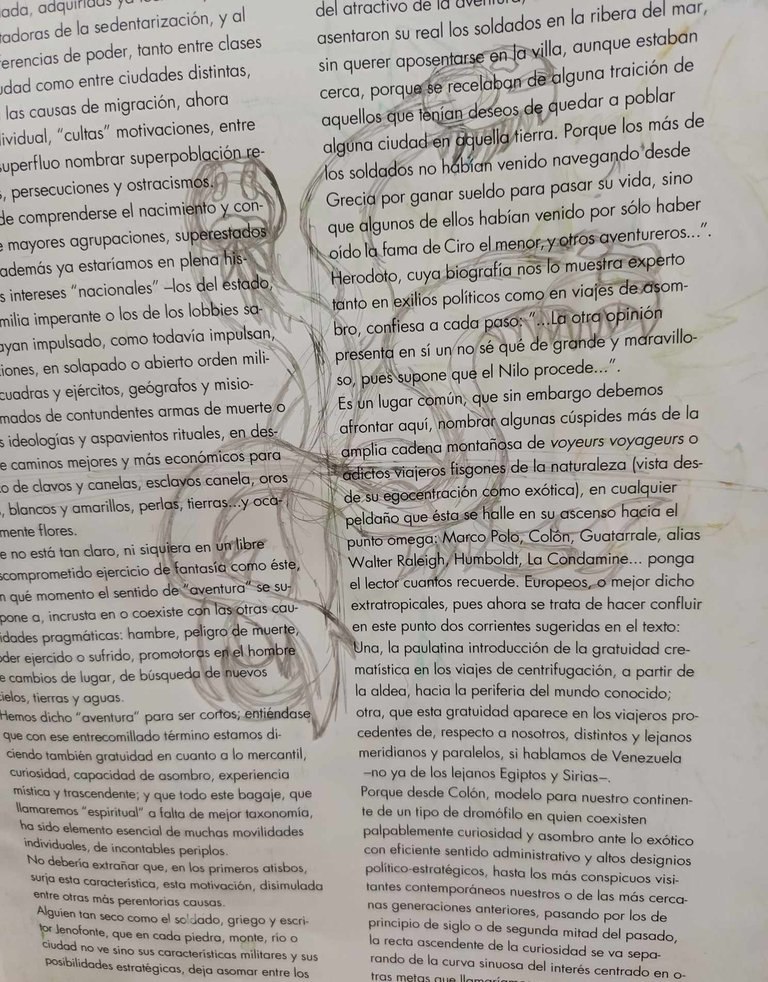 ada, adquiridas ya
tadoras de la sedentarización, y al
ferencias de poder, tanto entre clases
udad como entre ciudades distintas,
las causas de migración, ahora
lividual, “cultas” motivaciones, entre
superfluo nombrar superpoblación re-
s, persecuciones y ostracismos.
de comprenderse el nacimiento y con-
e mayores agrupaciones, superestados
además ya estaríamos en plena his-
s intereses “nacionales” –los del estado,
milia imperante o los de los lobbies sa-
ayan impulsado, como todavía impulsan,
iones, en solapado o abierto orden mili-
cuadras y ejércitos, geógrafos y misio-
mados de contundentes armas de muerte o
s ideologías y aspavientos rituales, en des-
e caminos mejores y más económicos para
o de clavos y canelas, esclavos canela, oros
, blancos y amarillos, perlas, tierras...y oca-
mente flores.
e no está tan claro, ni siquiera en un libre
scomprometido ejercicio de fantasía como éste,
n qué momento el sentido de “aventura” se su-
pone a, incrusta en o coexiste con las otras cau-
idades pragmáticas: hambre, peligro de muerte,
oder ejercido o sufrido, promotoras en el hombre
e cambios de lugar, de búsqueda de nuevos
ielos, tierras y aguas.
Hemos dicho “aventura” para ser cortos; entiéndase
que con ese entrecomillado término estamos di-
ciendo también gratuidad en cuanto a lo mercantil,
curiosidad, capacidad de asombro, experiencia
mística y trascendente; y que todo este bagaje, que
llamaremos “espiritual” a falta de mejor taxonomía,
ha sido elemento esencial de muchas movilidades
individuales, de incontables periplos.
No debería extrañar que, en los primeros atisbos,
surja esta característica, esta motivación, disimulada
entre otras más perentorias causas.
Alguien tan seco como el soldado, griego y escri-
tor Jenofonte, que en cada piedra, monte, río o
ciudad no ve sino sus características militares y sus
posibilidades estratégicas, deja asomar entre los
del atractivo de la aventura,
asentaron su real los soldados en la ribera del mar,
sin querer aposentarse en la villa, aunque estaban
cerca, porque se recelaban de alguna traición de
aquellos que tenían deseos de quedar a poblar
alguna ciudad en aquella tierra. Porque los más de
los soldados no habían venido navegando desde
Grecia por ganar sueldo para pasar su vida, sino
que algunos de ellos habían venido por sólo haber
oído la fama de Ciro el menor, y otros aventureros...”.
Herodoto, cuya biografía nos lo muestra experto
tanto en exilios políticos como en viajes de asom-
bro, confiesa a cada paso: “...La otra opinión
presenta en sí un no sé qué de grande y maravillo-
so, pues supone que el Nilo procede...”.
Es un lugar común, que sin embargo debemos
afrontar aquí, nombrar algunas cúspides más de la
amplia cadena montañosa de voyeurs voyageurs o
adictos viajeros fisgones de la naturaleza (vista des-
de su egocentración como exótica), en cualquier
peldaño que ésta se halle en su ascenso hacia el
punto omega: Marco Polo, Colón, Guatarrale, alias
Walter Raleigh, Humboldt, La Condamine... ponga
el lector cuantos recuerde. Europeos, o mejor dicho
extratropicales, pues ahora se trata de hacer confluir
en este punto dos corrientes sugeridas en el texto:
Una, la paulatina introducción de la gratuidad cre-
matística en los viajes de centrifugación, a partir de
la aldea, hacia la periferia del mundo conocido;
otra, que esta gratuidad aparece en los viajeros pro-
cedentes de, respecto a nosotros, distintos y lejanos
meridianos y paralelos, si hablamos de Venezuela
–no ya de los lejanos Egiptos y Sirias–.
Porque desde Colón, modelo para nuestro continen-
te de un tipo de dromófilo en quien coexisten
palpablemente curiosidad y asombro ante lo exótico
con eficiente sentido administrativo y altos designios
político-estratégicos, hasta los más conspicuos visi-
tantes contemporáneos nuestros o de las más cerca-
nas generaciones anteriores, pasando por los de
principio de siglo o de segunda mitad del pasado,
la recta ascendente de la curiosidad se va sepa-
rando de la curva sinuosa del interés centrado en o-
tras metas que